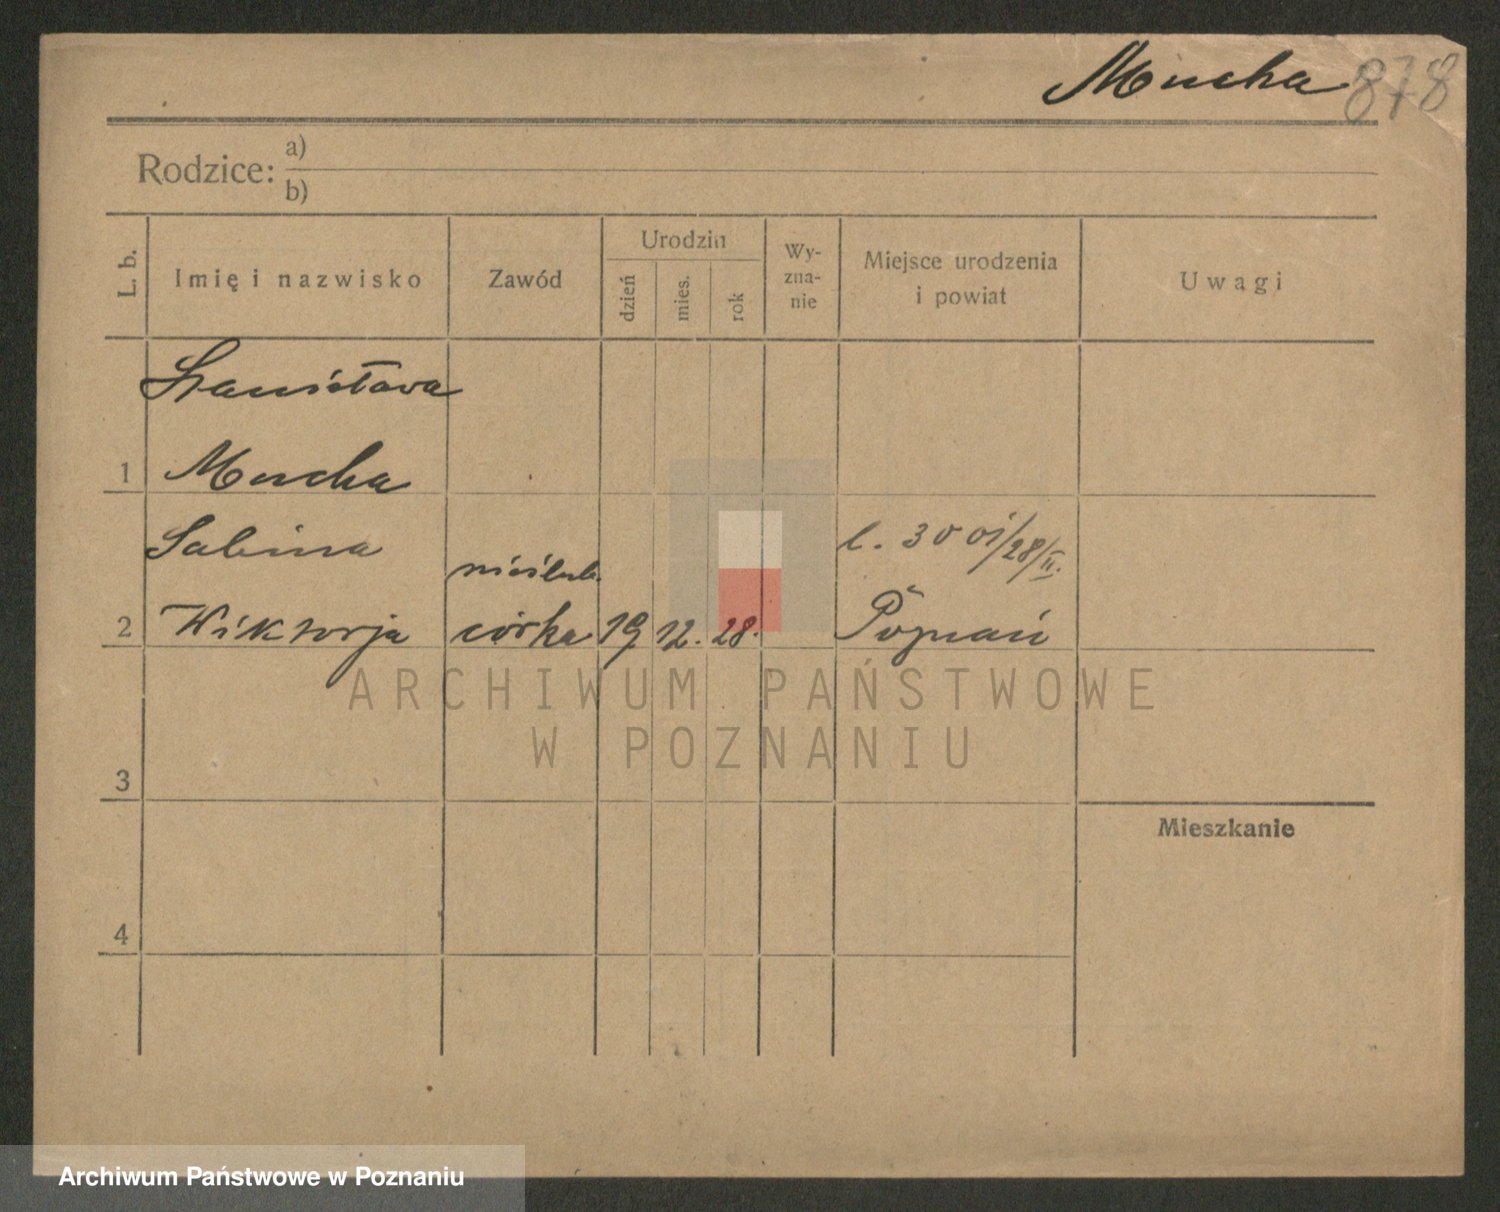 Mucha 878
Rodzice: a)
b)
L. b. Imię i nazwisko Zawód Urodzin dzień mies. rok Wy-zna-nie Miejsce urodzenia i powiat Uwagi
Stanisława
1 Mucha
Sabina nieślub. l. 30 /28/II.
2 Wiktorja córka 19 12. 28. Poznań
ARCHIWUM PAŃSTWOWE
W POZNANIU
3
Mieszkanie
4
Archiwum Państwowe w Poznaniu